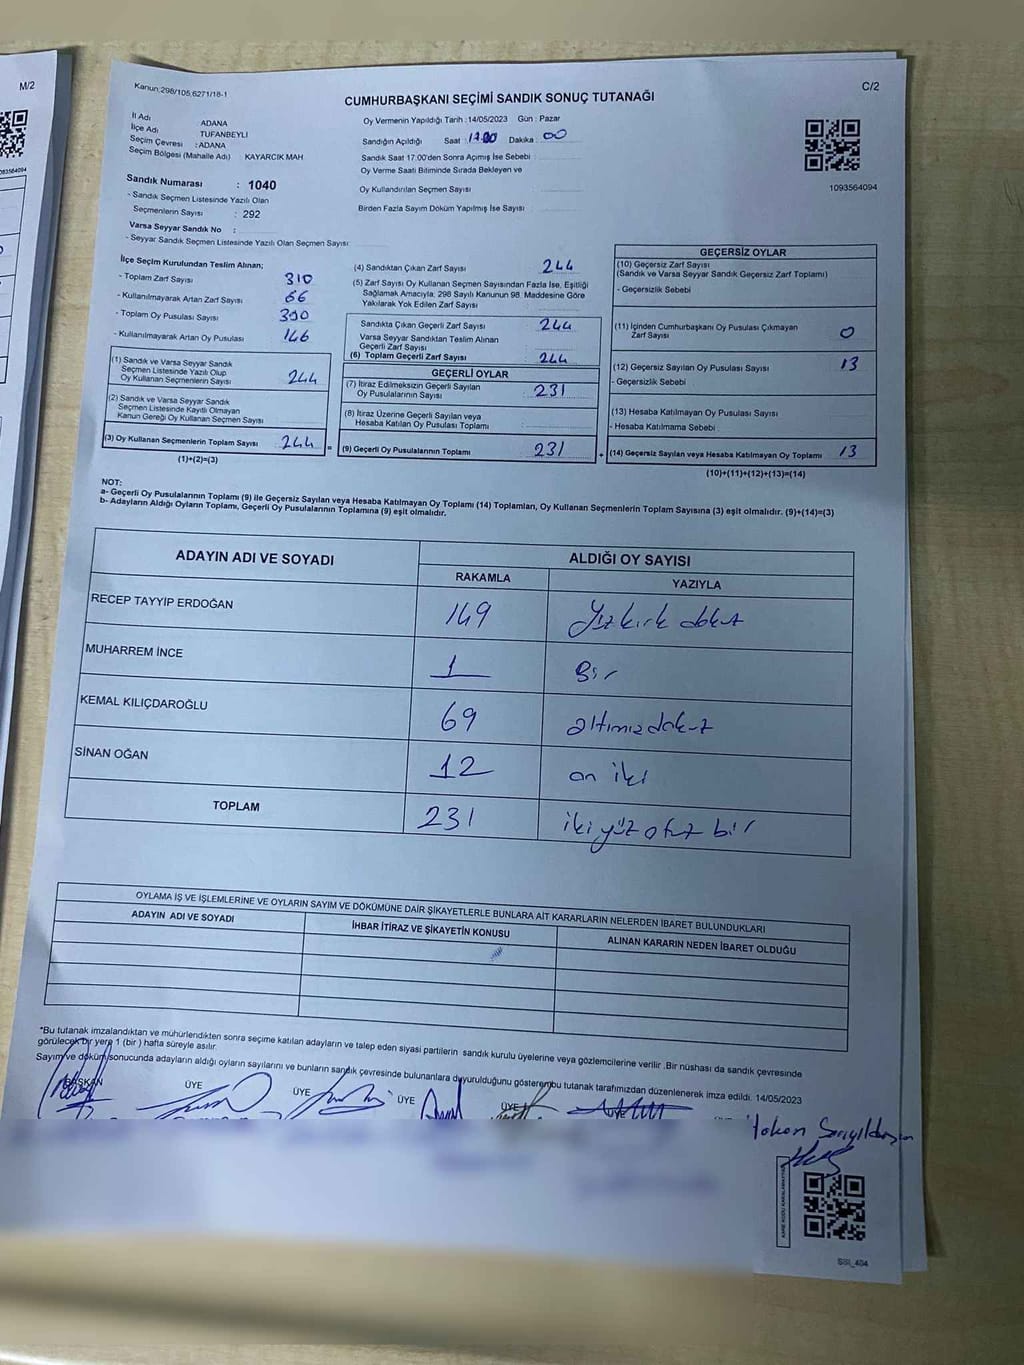 M/2
Kanun:298/105,6271/18-1
C/2
CUMHURBAŞKANI SEÇİMİ SANDIK SONUÇ TUTANAĞI
İl Adı ADANA
İlçe Adı TUFANBEYLİ
Seçim Çevresi :ADANA
Seçim Bölgesi (Mahalle Adı) KAYARCIK MAH
Sandık Numarası : 1040
- Sandık Seçmen Listesinde Yazılı Olan
Seçmenlerin Sayısı : 292
Varsa Seyyar Sandık No :
- Seyyar Sandık Seçmen Listesinde Yazılı Olan Seçmen Sayısı
Oy Vermenin Yapıldığı Tarih :14/05/2023 Gün : Pazar
Sandığın Açıldığı Saat : 17.00 Dakika : 00
Sandık Saat 17:00'den Sonra Açımış İse Sebebi
Oy Verme Saati Bitiminde Sırada Bekleyen ve
Oy Kullandırılan Seçmen Sayısı
Birden Fazla Sayım Döküm Yapılmış İse Sayısı
1093564094
İlçe Seçim Kurulundan Teslim Alınan;
- Toplam Zarf Sayısı 310
- Kullanılmayarak Artan Zarf Sayısı 66
- Toplam Oy Pusulası Sayısı 390
- Kullanılmayarak Artan Oy Pusulası 146
(1) Sandık ve Varsa Seyyar Sandık
Seçmen Listesinde Yazılı Olup
Oy Kullanan Seçmenlerin Sayısı 244
(2) Sandık ve Varsa Seyyar Sandık
Seçmen Listesinde Kayıtlı Olmayan
Kanun Gereği Oy Kullanan Seçmen Sayısı
(3) Oy Kullanan Seçmenlerin Toplam Sayısı 244 =
(1)+(2)=(3)
(4) Sandıktan Çıkan Zarf Sayısı 244
(5) Zarf Sayısı Oy Kullanan Seçmen Sayısından Fazla İse, Eşitliği
Sağlamak Amacıyla; 298 Sayılı Kanunun 98. Maddesine Göre
Yakılarak Yok Edilen Zarf Sayısı
Sandıkta Çıkan Geçerli Zarf Sayısı 244
Varsa Seyyar Sandıktan Teslim Alınan
Geçerli Zarf Sayısı
(6) Toplam Geçerli Zarf Sayısı 244
GEÇERLİ OYLAR
(7) İtiraz Edilmeksizin Geçerli Sayılan
Oy Pusulalarının Sayısı 231
(8) İtiraz Üzerine Geçerli Sayılan veya
Hesaba Katılan Oy Pusulası Toplamı
(9) Geçerli Oy Pusulalarının Toplamı 231 +
GEÇERSİZ OYLAR
(10) Geçersiz Zarf Sayısı
(Sandık ve Varsa Seyyar Sandık Geçersiz Zarf Toplamı)
- Geçersizlik Sebebi
(11) İçinden Cumhurbaşkanı Oy Pusulası Çıkmayan
Zarf Sayısı 0
(12) Geçersiz Sayılan Oy Pusulası Sayısı 13
- Geçersizlik Sebebi
(13) Hesaba Katılmayan Oy Pusulası Sayısı
- Hesaba Katılmama Sebebi
(14) Geçersiz Sayılan veya Hesaba Katılmayan Oy Toplamı 13
(10)+(11)+(12)+(13)=(14)
NOT:
a- Geçerli Oy Pusulalarının Toplamı (9) ile Geçersiz Sayılan veya Hesaba Katılmayan Oy Toplamı (14) Toplamları, Oy Kullanan Seçmenlerin Toplam Sayısına (3) eşit olmalıdır. (9)+(14)=(3)
b- Adayların Aldığı Oyların Toplamı, Geçerli Oy Pusulalarının Toplamına (9) eşit olmalıdır.
ADAYIN ADI VE SOYADI ALDIĞI OY SAYISI
RAKAMLA YAZIYLA
RECEP TAYYİP ERDOĞAN 149 Yüzkırk dokuz
MUHARREM İNCE 1 Bir
KEMAL KILIÇDAROĞLU 69 altmışdokuz
SİNAN OĞAN 12 on iki
TOPLAM 231 iki yüz otuz bir
OYLAMA İŞ VE İŞLEMLERİNE VE OYLARIN SAYIM VE DÖKÜMÜNE DAİR ŞİKAYETLERLE BUNLARA AİT KARARLARIN NELERDEN İBARET BULUNDUKLARI
ADAYIN ADI VE SOYADI İHBAR İTİRAZ VE ŞİKAYETİN KONUSU ALINAN KARARIN NEDEN İBARET OLDUĞU
*Bu tutanak imzalandıktan ve mühürlendikten sonra seçime katılan adayların ve talep eden siyasi partilerin sandık kurulu üyelerine veya gözlemcilerine verilir .Bir nüshası da sandık çevresinde
görülecek bir yere 1 (bir ) hafta süreyle asılır.
Sayım ve döküm sonucunda adayların aldığı oyların sayılarını ve bunların sandık çevresinde bulunanlara duyurulduğunu gösteren bu tutanak tarafımızdan düzenlenerek imza edildi. 14/05/2023
BAŞKAN ÜYE ÜYE ÜYE ÜYE ÜYE
SSI_404